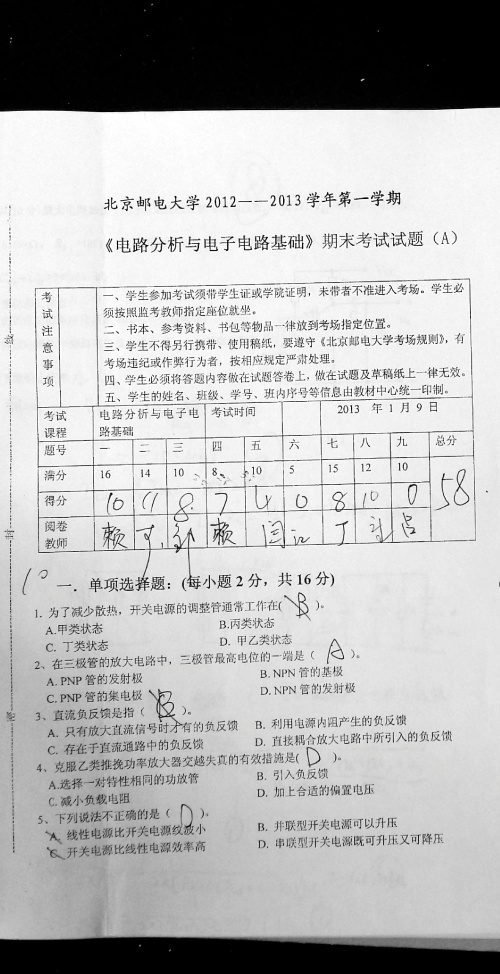 北京邮电大学 2012——2013 学年第一学期
《电路分析与电子电路基础》期末考试试题（A）
考试注意事项
一、学生参加考试须带学生证或学院证明，未带者不准进入考场。学生必
须按照监考教师指定座位就坐。
二、书本、参考资料、书包等物品一律放到考场指定位置。
三、学生不得另行携带、使用稿纸，要遵守《北京邮电大学考场规则》，有
考场违纪或作弊行为者，按相应规定严肃处理。
四、学生必须将答题内容做在试题答卷上，做在试题及草稿纸上一律无效。
五、学生的姓名、班级、学号、班内序号等信息由教材中心统一印制。
考试课程 电路分析与电子电路基础 考试时间 2013 年 1 月 9 日
题号 一 二 三 四 五 六 七 八 九 总分
满分 16 14 10 8 10 5 15 12 10
得分 10 11 8 7 4 0 8 10 0 58
阅卷教师 赖 赖 闫 江 丁 吕
10
一．单项选择题：(每小题 2 分，共 16 分)
1. 为了减少散热，开关电源的调整管通常工作在( B )。
A.甲类状态 B.丙类状态
C. 丁类状态 D. 甲乙类状态
2、在三极管的放大电路中，三极管最高电位的一端是（ A ）。
A. PNP 管的发射极 B. NPN 管的基极
C. PNP 管的集电极 D. NPN 管的发射极
3、直流负反馈是指（ B ）。
A. 只有放大直流信号时才有的负反馈 B. 利用电源内阻产生的负反馈
C. 存在于直流通路中的负反馈 D. 直接耦合放大电路中所引入的负反馈
4、克服乙类推挽功率放大器交越失真的有效措施是( D )。
A.选择一对特性相同的功放管 B. 引入负反馈
C. 减小负载电阻 D. 加上合适的偏置电压
5、下列说法不正确的是（ D ）。
A. 线性电源比开关电源纹波小 B. 并联型开关电源可以升压
C. 开关电源比线性电源效率高 D. 串联型开关电源既可升压又可降压